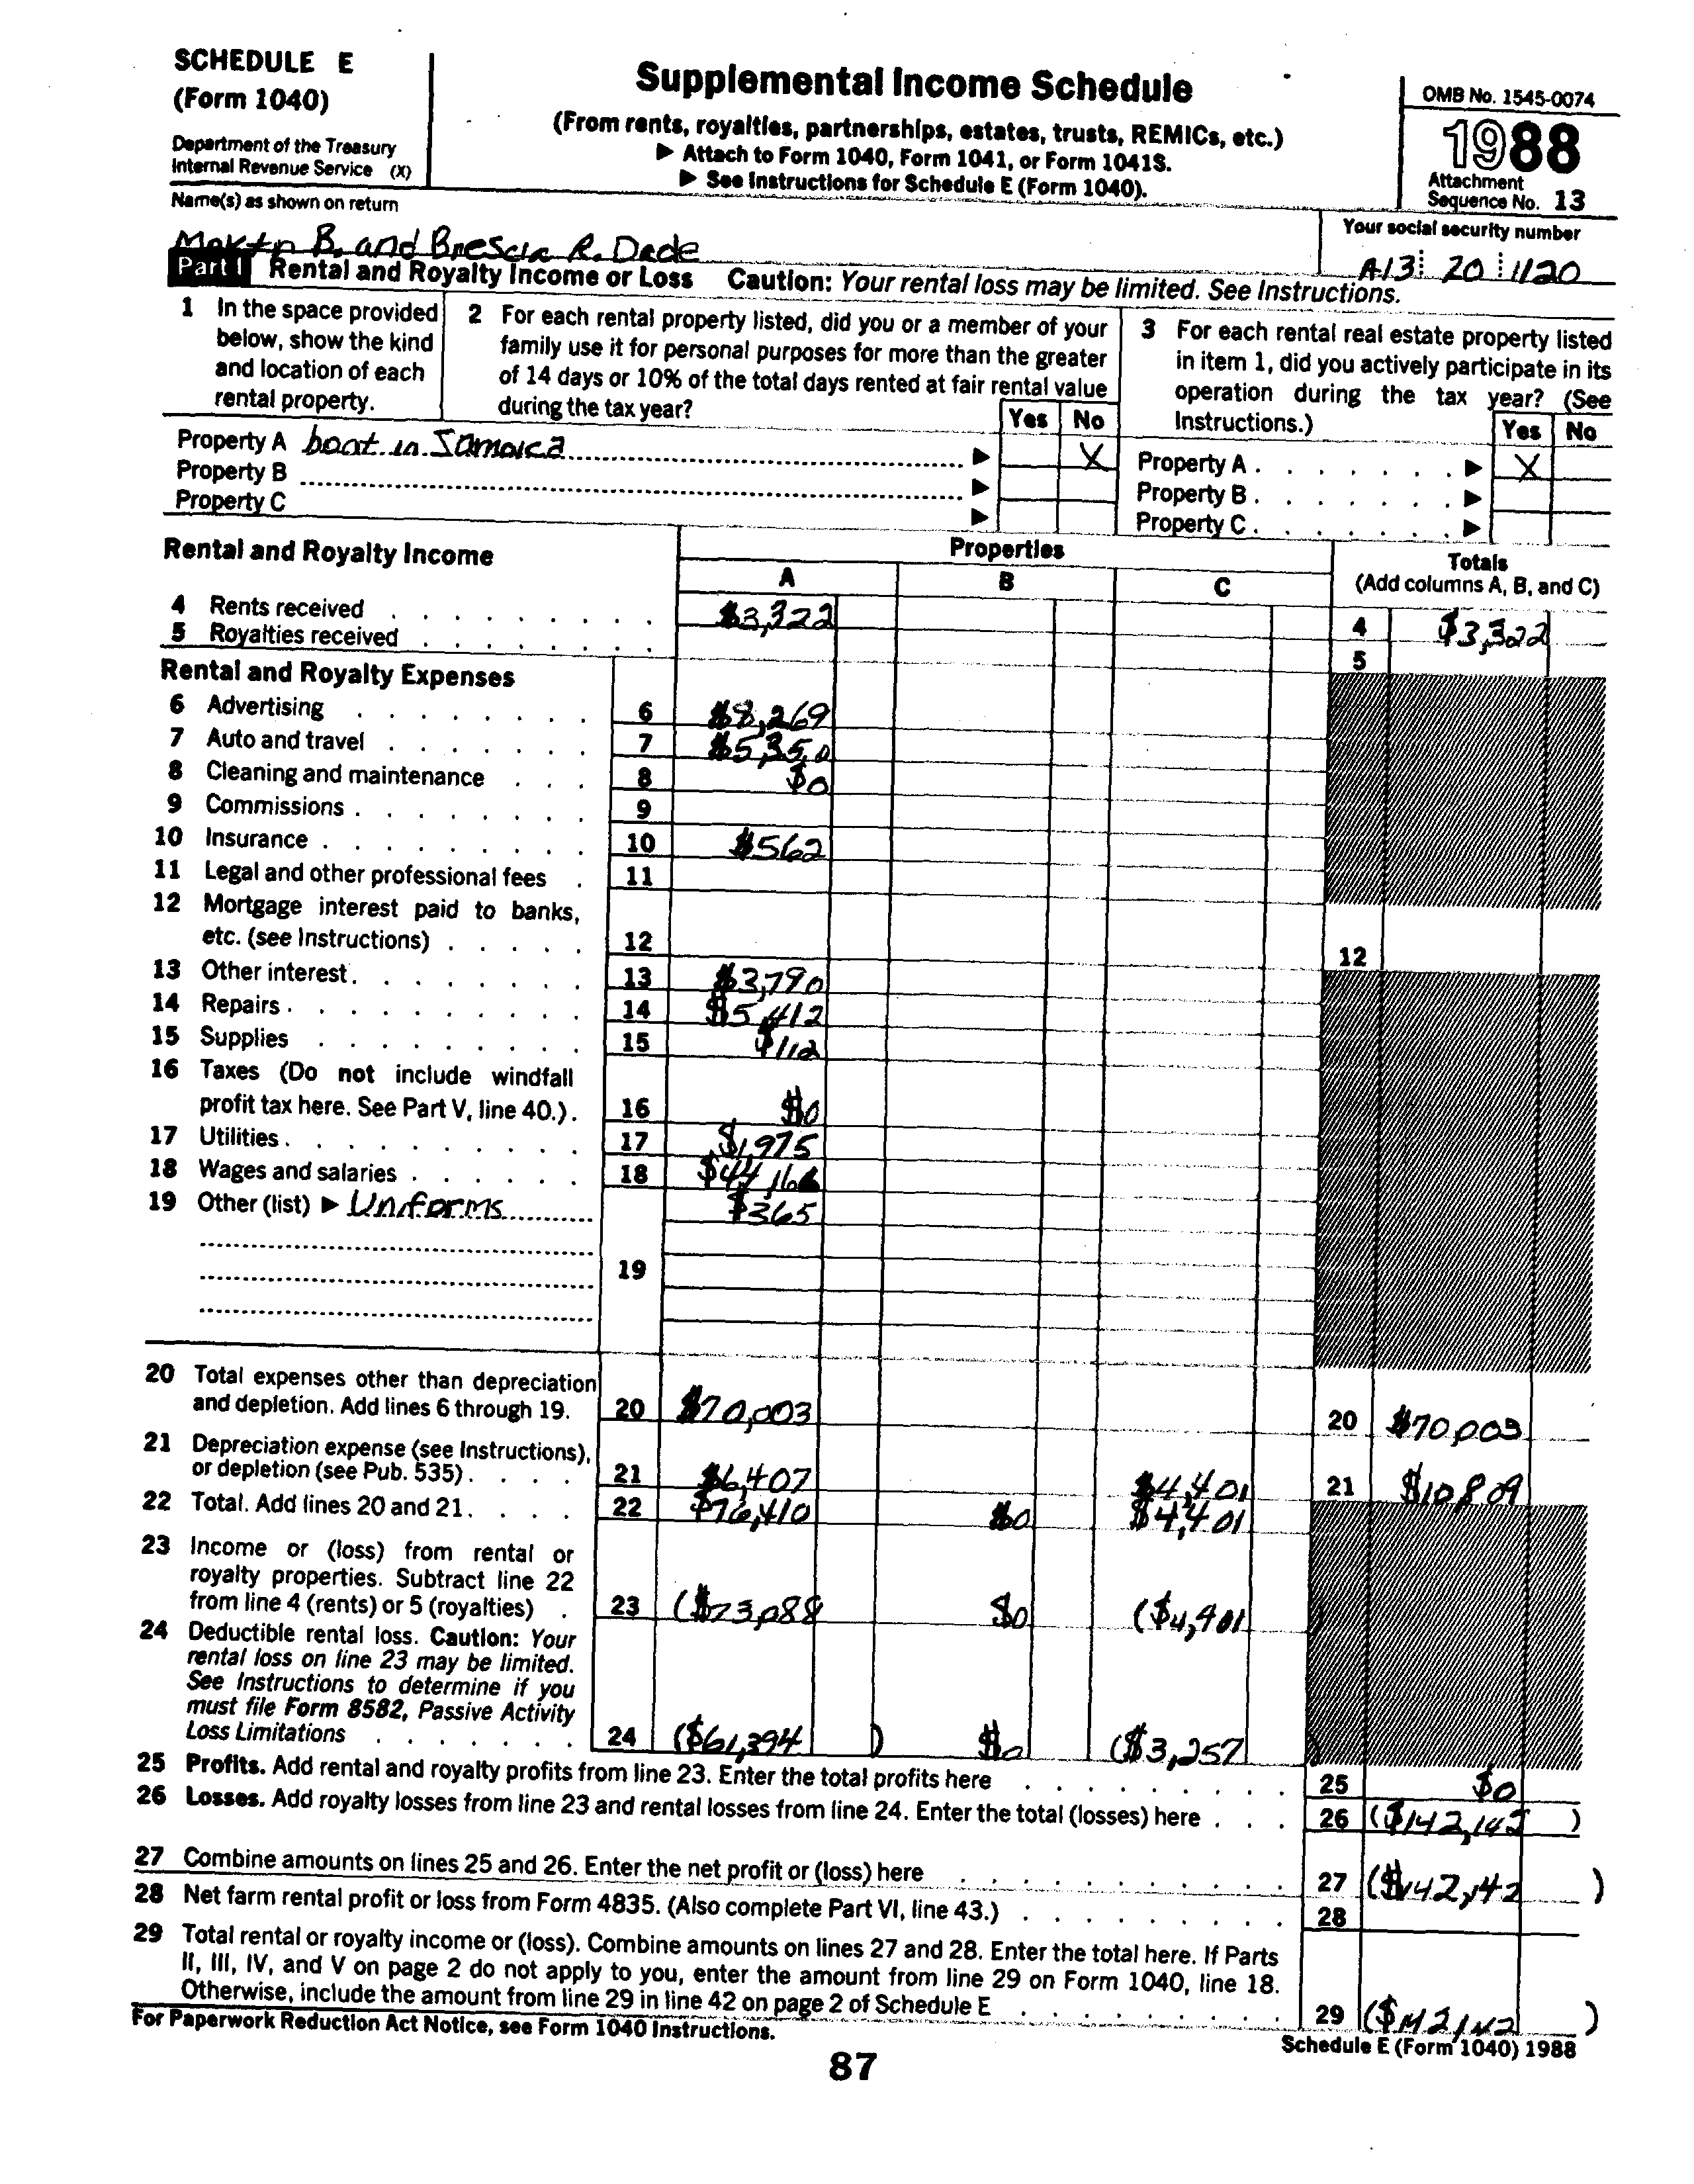 SCHEDULE E
(Form 1040)
Department of the Treasury
Internal Revenue Service (X)
Supplemental Income Schedule
(From rents, royalties, partnerships, estates, trusts, REMICs, etc.)
▶ Attach to Form 1040, Form 1041, or Form 1041S.
▶ See Instructions for Schedule E (Form 1040).
OMB No. 1545-0074
1988
Attachment
Sequence No. 13
Name(s) as shown on return
Your social security number
B. and Brescia R. Dade
A13 20 1120
Part I Rental and Royalty Income or Loss Caution: Your rental loss may be limited. See Instructions.
1 In the space provided
below, show the kind
and location of each
rental property.
2 For each rental property listed, did you or a member of your
family use it for personal purposes for more than the greater
of 14 days or 10% of the total days rented at fair rental value
during the tax year?
Yes No
3 For each rental real estate property listed
in item 1, did you actively participate in its
operation during the tax year? (See
Instructions.)
Yes No
Property A boat in Jamaica ▶ X Property A . . . . . . . ▶ X
Property B ▶ Property B . . . . . . . ▶
Property C ▶ Property C . . . . . . . ▶
Rental and Royalty Income
Properties
A B C
Totals
(Add columns A, B, and C)
4 Rents received . . . . . . . . $3,322 4 $3,322
5 Royalties received . . . . . . . 5
Rental and Royalty Expenses
6 Advertising . . . . . . . . 6 $8,269
7 Auto and travel . . . . . . . 7 $5,350
8 Cleaning and maintenance . . . 8 $0
9 Commissions . . . . . . . . 9
10 Insurance . . . . . . . . . 10 $562
11 Legal and other professional fees . 11
12 Mortgage interest paid to banks,
etc. (see Instructions) . . . . . 12 12
13 Other interest. . . . . . . . 13 $3,790
14 Repairs . . . . . . . . . . 14 $5,412
15 Supplies . . . . . . . . . 15 $112
16 Taxes (Do not include windfall
profit tax here. See Part V, line 40.) . 16 $0
17 Utilities . . . . . . . . . . 17 $1,975
18 Wages and salaries . . . . . . 18 $44,168
19 Other (list) ▶ Uniforms $365
19
20 Total expenses other than depreciation
and depletion. Add lines 6 through 19. 20 $70,003 20 $70,003
21 Depreciation expense (see Instructions),
or depletion (see Pub. 535) . . . . 21 $6,407 $4,401 21 $10,809
22 Total. Add lines 20 and 21. . . . 22 $76,410 $0 $4,401
23 Income or (loss) from rental or
royalty properties. Subtract line 22
from line 4 (rents) or 5 (royalties) . 23 ($73,088 $0 ($4,401
24 Deductible rental loss. Caution: Your
rental loss on line 23 may be limited.
See Instructions to determine if you
must file Form 8582, Passive Activity
Loss Limitations . . . . . . . 24 ($61,394 ) $0 ($3,257
25 Profits. Add rental and royalty profits from line 23. Enter the total profits here . . . . . . . . . 25 $0
26 Losses. Add royalty losses from line 23 and rental losses from line 24. Enter the total (losses) here . . . 26 ($142,142 )
27 Combine amounts on lines 25 and 26. Enter the net profit or (loss) here . . . . . . . . . . . 27 ($142,142 )
28 Net farm rental profit or loss from Form 4835. (Also complete Part VI, line 43.) . . . . . . . . . 28
29 Total rental or royalty income or (loss). Combine amounts on lines 27 and 28. Enter the total here. If Parts
II, III, IV, and V on page 2 do not apply to you, enter the amount from line 29 on Form 1040, line 18.
Otherwise, include the amount from line 29 in line 42 on page 2 of Schedule E . . . . . . . . . 29 ($142,142 )
For Paperwork Reduction Act Notice, see Form 1040 Instructions.
Schedule E (Form 1040) 1988
87